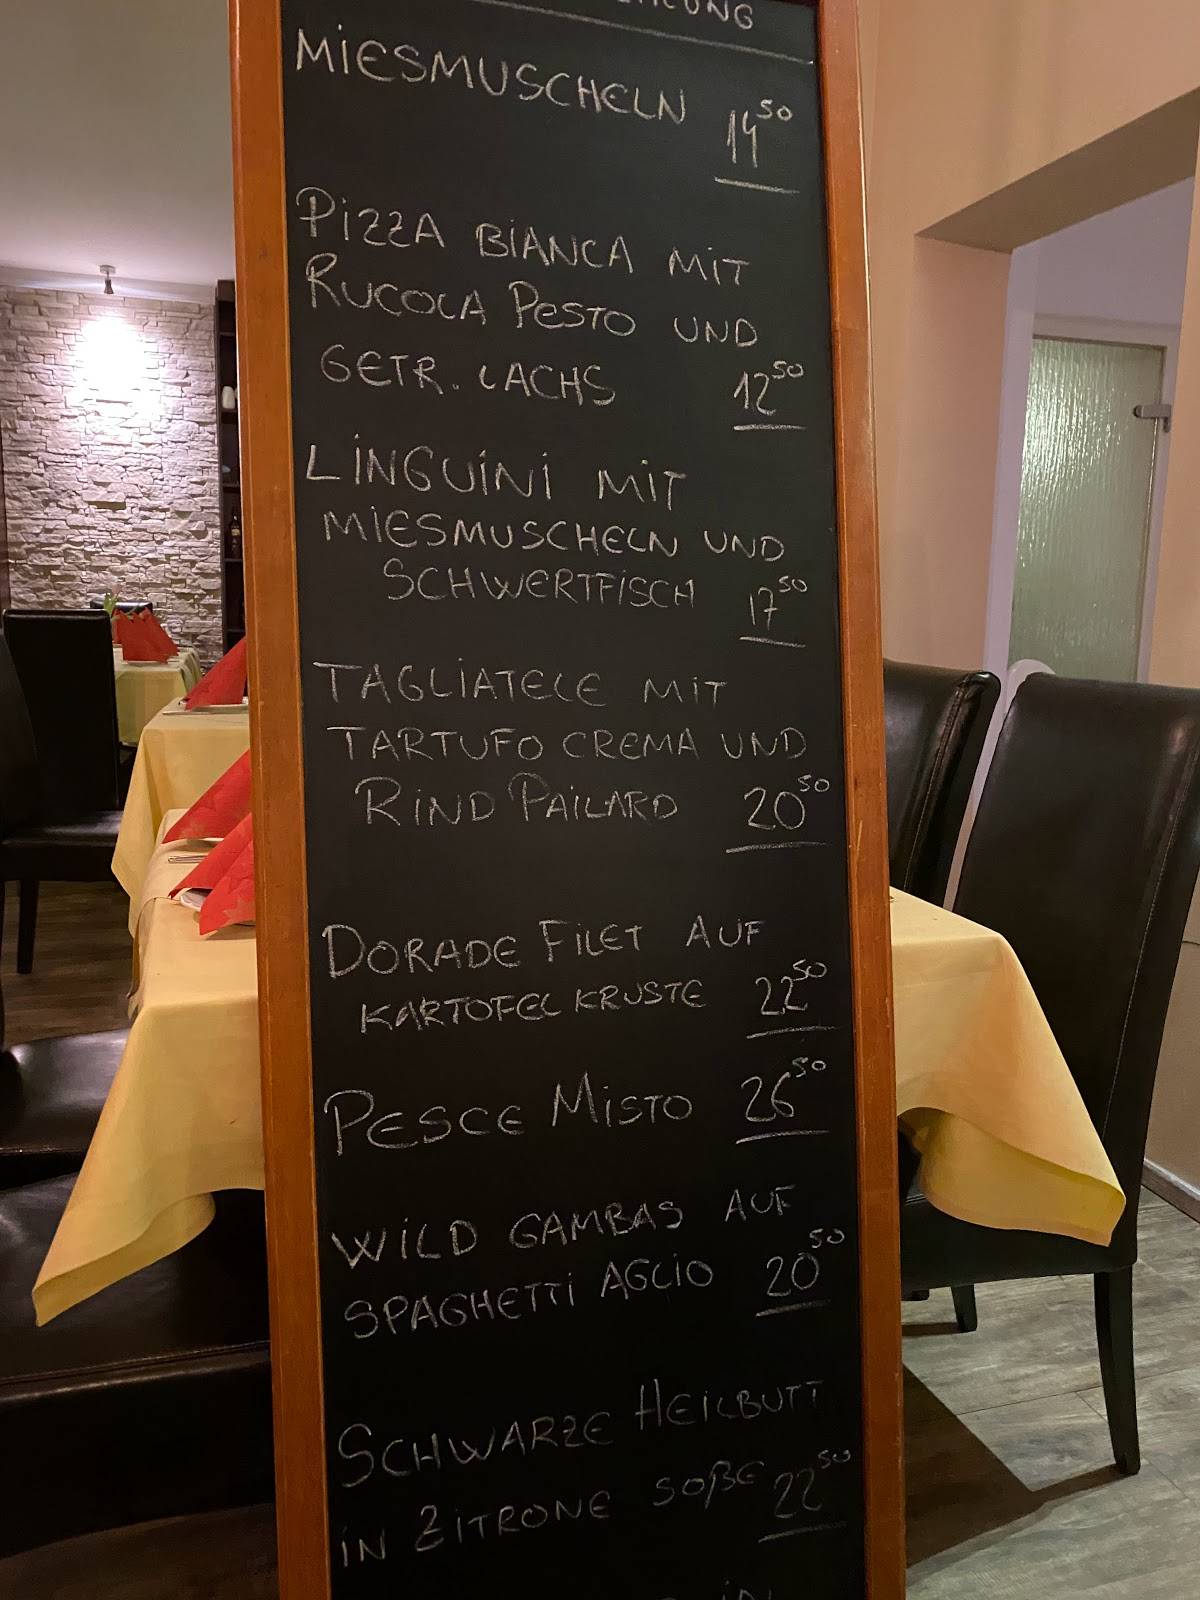 MIESMUSCHELN 14 50
PIZZA BIANCA MIT
RUCOLA PESTO UND
GETR. LACHS 12 50
LINGUINI MIT
MIESMUSCHELN UND
SCHWERTFISCH 17 50
TAGLIATELE MIT
TARTUFO CREMA UND
RIND PAILARD 20 50
DORADE FILET AUF
KARTOFEL KRUSTE 22 50
PESCE MISTO 26 50
WILD GAMBAS AUF
SPAGHETTI AGLIO 20 50
SCHWARZE HEILBUTT
IN ZITRONE SOßE 22 50